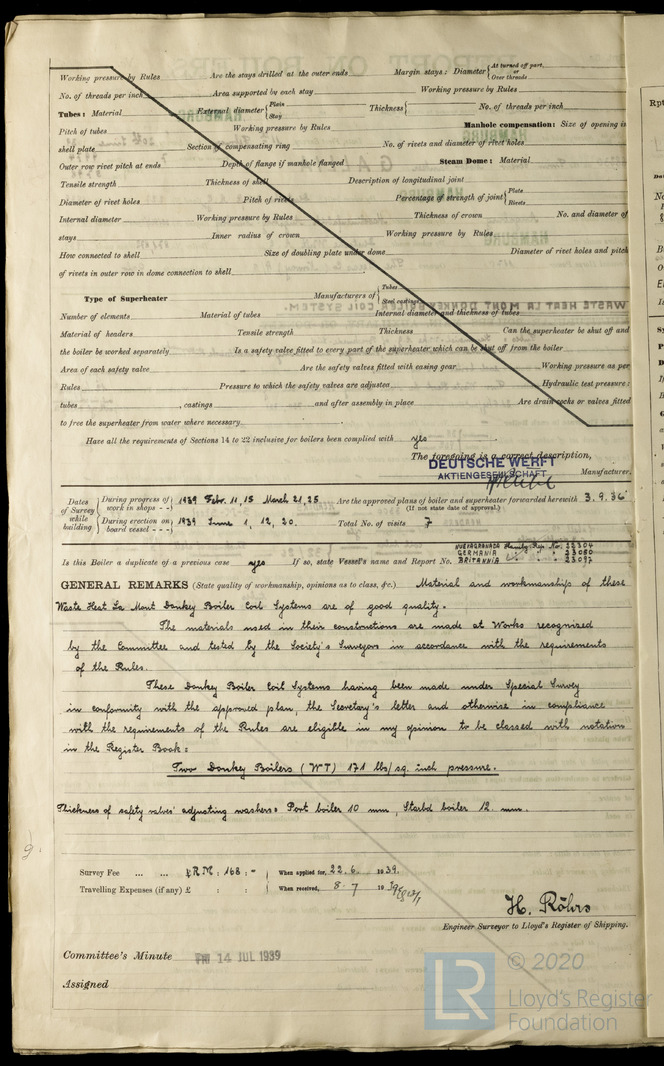 Working pressure by Rules Are the stays drilled at the outer ends Margin stays: Diameter { At turned off part, or Over threads
No. of threads per inch Area supported by each stay Working pressure by Rules
Tubes: Material External diameter { Plain Stay Thickness { No. of threads per inch
Pitch of tubes Working pressure by Rules Manhole compensation: Size of opening in
shell plate Section of compensating ring No. of rivets and diameter of rivet holes
Outer row rivet pitch at ends Depth of flange if manhole flanged Steam Dome: Material
Tensile strength Thickness of shell Description of longitudinal joint
Diameter of rivet holes Pitch of rivets Percentage of strength of joint { Plate Rivets
Internal diameter Working pressure by Rules Thickness of crown No. and diameter of
stays Inner radius of crown Working pressure by Rules
How connected to shell Size of doubling plate under dome Diameter of rivet holes and pitch
of rivets in outer row in dome connection to shell
Type of Superheater Manufacturers of { Tubes Steel castings
Number of elements Material of tubes Internal diameter and thickness of tubes
Material of headers Tensile strength Thickness Can the superheater be shut off and
the boiler be worked separately Is a safety valve fitted to every part of the superheater which can be shut off from the boiler
Area of each safety valve Are the safety valves fitted with easing gear Working pressure as per
Rules Pressure to which the safety valves are adjusted Hydraulic test pressure:
tubes , castings and after assembly in place Are drain cocks or valves fitted
to free the superheater from water where necessary
Have all the requirements of Sections 14 to 22 inclusive for boilers been complied with yes
The foregoing is a correct description,
DEUTSCHE WERFT
AKTIENGESELLSCHAFT Manufacturer.
Dates of Survey while building { During progress of work in shops - - } 1939 Febr. 11, 15 March 21, 25 Are the approved plans of boiler and superheater forwarded herewith 3.9.36
(If not state date of approval.)
During erection on board vessel - - - } 1939 June 1, 12, 20. Total No. of visits 7
Is this Boiler a duplicate of a previous case yes If so, state Vessel's name and Report No.
GERMANIA 23050
BRITANNIA 23097
GENERAL REMARKS (State quality of workmanship, opinions as to class, &c.) Material and workmanship of these
Waste Heat La Mont Donkey Boiler Coil Systems are of good quality.
The materials used in their constructions are made at Works recognised
by the Committee and tested by the Society's Surveyors in accordance with the requirements
of the Rules.
These Donkey Boiler Coil Systems having been made under Special Survey
in conformity with the approved plan, the Secretary's letter and otherwise in compliance
with the requirements of the Rules are eligible in my opinion to be classed with notation
in the Register Book:
Two Donkey Boilers (WT) 171 lbs/sq. inch pressure.
Thickness of safety valves' adjusting washers: Port boiler 10 mm, Starbd boiler 12. mm.
Survey Fee ... ... £RM : 168 : - When applied for, 22.6. 1939.
Travelling Expenses (if any) £ : : When received, 8.7 1939
H. Röhrs
Engineer Surveyor to Lloyd's Register of Shipping.
Committee's Minute FRI 14 JUL 1939
Assigned
LR © 2020
Lloyd's Register
Foundation